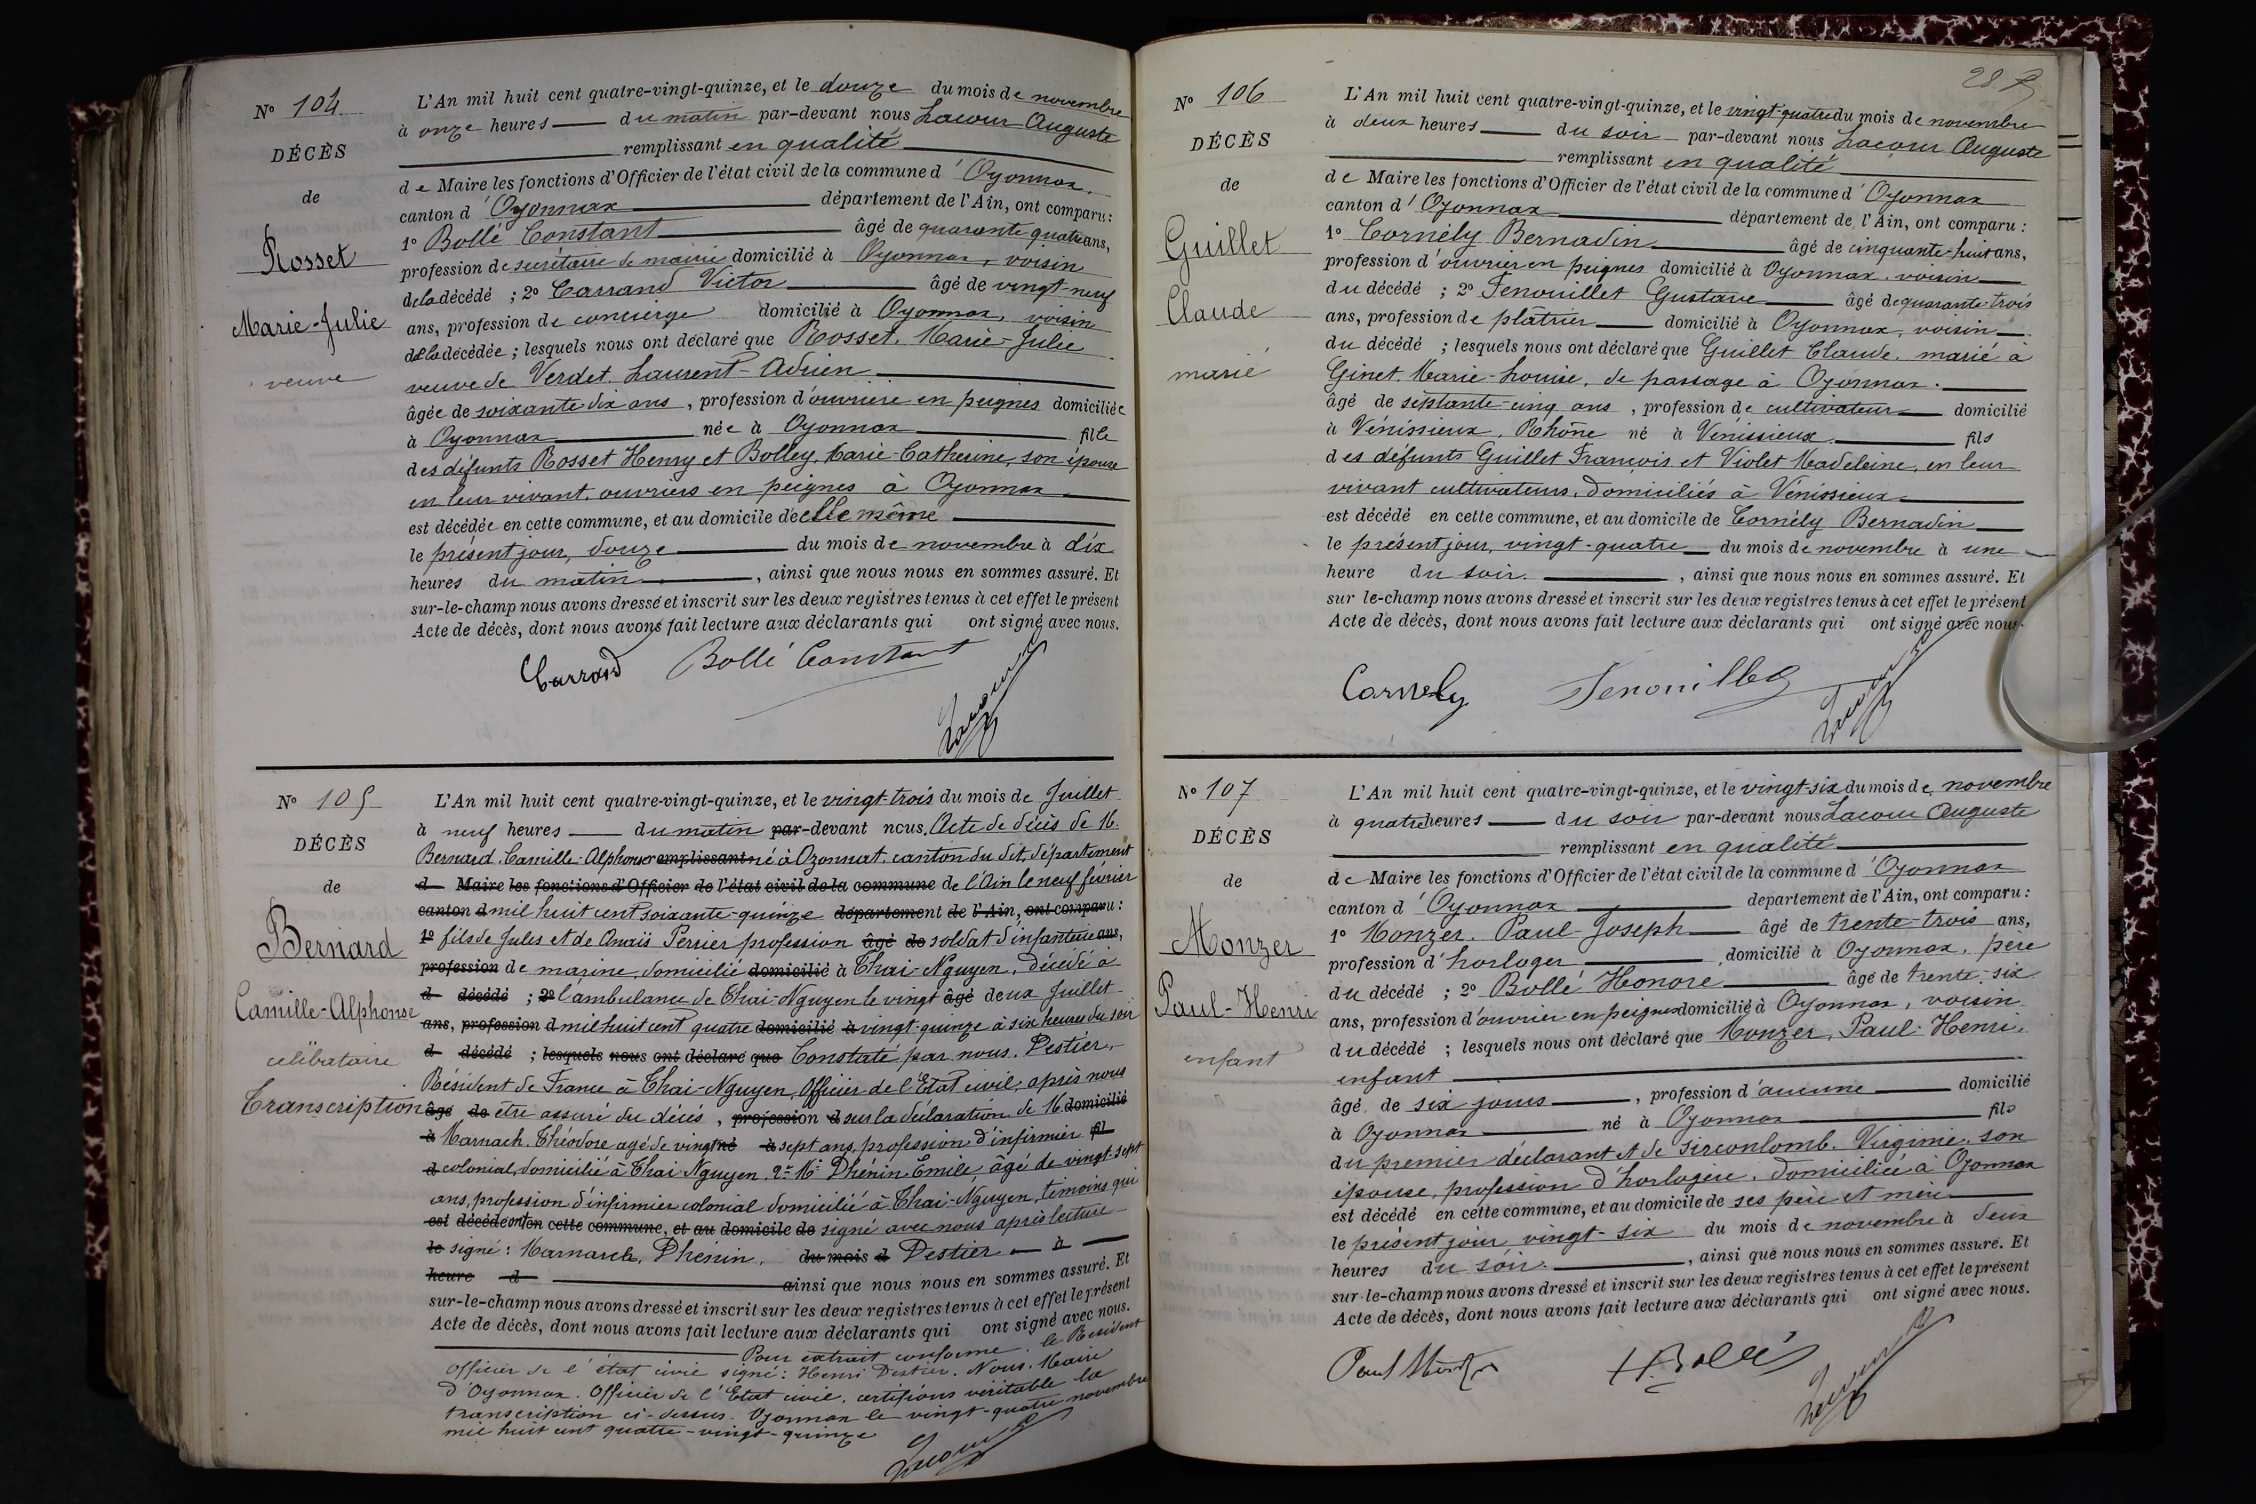 N° 104
DÉCÈS
de
Rosset
Marie-Julie
veuve
L'An mil huit cent quatre-vingt-quinze, et le douze du mois de novembre
à onze heures du matin par-devant nous Lacour Auguste
remplissant en qualité
de Maire les fonctions d'Officier de l'état civil de la commune d'Oyonnax.
canton d'Oyonnax département de l'Ain, ont comparu :
1° Bollé Constant âgé de quarante quatre ans,
profession de secrétaire de mairie domicilié à Oyonnax, voisin
de la décédé ; 2° Carrand Victor âgé de vingt-neuf
ans, profession de concierge domicilié à Oyonnax, voisin
de la décédée ; lesquels nous ont déclaré que Rosset, Marie-Julie
veuve de Verdet. Laurent-Adrien
âgée de soixante dix ans, profession d'ouvrière en peignes domiciliée
à Oyonnax née à Oyonnax fille
des défunts Rosset Henry et Bolley, Marie-Catherine, son épouse
en leur vivant, ouvriers en peignes à Oyonnax
est décédée en cette commune, et au domicile de elle même
le présent jour, douze du mois de novembre à dix
heures du matin, ainsi que nous nous en sommes assuré. Et
sur-le-champ nous avons dressé et inscrit sur les deux registres tenus à cet effet le présent
Acte de décès, dont nous avons fait lecture aux déclarants qui ont signé avec nous.
Carrand Bollé Constant
Lacour
N° 105
DÉCÈS
de
Bernard
Camille-Alphonse
célibataire
Transcription
L'An mil huit cent quatre-vingt-quinze, et le vingt-trois du mois de Juillet
à neuf heures du matin par-devant nous, Acte de décès de M.
Bernard. Camille-Alphonse remplissant né à Ozonnat, canton du dit, département
d Maire les fonctions d'Officier de l'état civil de la commune de l'Ain le neuf février
canton d mil huit cent soixante-quinze département de l'Ain, ont comparu :
1° fils de Jules et de Anaïs Perrier profession âgé de soldat d'infanterie ans,
profession de marine, domicilié domicilié à Thai-Nguyen, décédé à
d décédé ; 2° l'ambulance de Thai-Nguyen le vingt âgé deux Juillet
ans, profession d mil huit cent quatre domicilié à vingt-quinze à six heures du soir
d décédé ; lesquels nous ont déclaré que Constaté par nous. Destier,
Résident de France à Thai-Nguyen, Officier de l'Etat civil, après nous
âgé de être assuré du décès, profession d sur la déclaration de M. domicilié
à Marnach. Théodore agé de vingt né à sept ans, profession d'infirmier fil
d colonial, domicilié à Thai Nguyen. 2° M. Dhénin Emile, âgé de vingt-sept
ans, profession d'infirmier colonial domicilié à Thai-Nguyen, témoins qui
est décédé ont en cette commune, et au domicile de signé avec nous après lecture
le signé : Marnach, Dhénin, du mois d Destier à
heure d ainsi que nous nous en sommes assuré. Et
sur-le-champ nous avons dressé et inscrit sur les deux registres tenus à cet effet le présent
Acte de décès, dont nous avons fait lecture aux déclarants qui ont signé avec nous.
Pour extrait conforme. le Resident
Officier de l'état civil signé : Henri Destier. Nous, Maire
d'Oyonnax. Officier de l'Etat civil, certifions véritable la
transcription ci-dessus. Oyonnax le vingt-quatre novembre
mil huit cent quatre-vingt-quinze
Lacour
N° 106
DÉCÈS
de
Guillet
Claude
marié
L'An mil huit cent quatre-vingt-quinze, et le vingt-quatre du mois de novembre
à deux heures du soir par-devant nous Lacour Auguste
remplissant en qualité
de Maire les fonctions d'Officier de l'état civil de la commune d'Oyonnax
canton d'Oyonnax département de l'Ain, ont comparu :
1° Cornély Bernadin âgé de cinquante-huit ans,
profession d'ouvrier en peignes domicilié à Oyonnax. voisin
du décédé ; 2° Fenouillet Gustave âgé de quarante-trois
ans, profession de plâtrier domicilié à Oyonnax, voisin
du décédé ; lesquels nous ont déclaré que Guillet Claude. marié à
Ginet. Marie-Louise, de passage à Oyonnax.
âgé de septante-cinq ans, profession de cultivateur domicilié
à Vénissieux, Rhône né à Vénissieux fils
des défunts Guillet François et Violet Madeleine, en leur
vivant cultivateurs, domiciliés à Vénissieux
est décédé en cette commune, et au domicile de Cornély Bernadin
le présent jour, vingt-quatre du mois de novembre à une
heure du soir., ainsi que nous nous en sommes assuré. Et
sur le-champ nous avons dressé et inscrit sur les deux registres tenus à cet effet le présent
Acte de décès, dont nous avons fait lecture aux déclarants qui ont signé avec nous.
Cornely Fenouillet
Lacour
N° 107
DÉCÈS
de
Monzer
Paul-Henri
enfant
L'An mil huit cent quatre-vingt-quinze, et le vingt-six du mois de novembre
à quatre heures du soir par-devant nous Lacour Auguste
remplissant en qualité
de Maire les fonctions d'Officier de l'état civil de la commune d'Oyonnax
canton d'Oyonnax département de l'Ain, ont comparu :
1° Monzer. Paul-Joseph âgé de trente-trois ans,
profession d'horloger domicilié à Oyonnax, père
du décédé ; 2° Bollé Honoré âgé de trente-six
ans, profession d'ouvrier en peignes domicilié à Oyonnax, voisin
du décédé ; lesquels nous ont déclaré que Monzer, Paul-Henri,
enfant
âgé de six jours, profession d'aucune domicilié
à Oyonnax né à Oyonnax fils
du premier déclarant et de Sirconlomb. Virginie. son
épouse, profession d'horlogère. domiciliée à Oyonnax
est décédé en cette commune, et au domicile de ses père et mère
le présent jour vingt-six du mois de novembre à deux
heures du soir., ainsi que nous nous en sommes assuré. Et
sur-le-champ nous avons dressé et inscrit sur les deux registres tenus à cet effet le présent
Acte de décès, dont nous avons fait lecture aux déclarants qui ont signé avec nous.
H. Bollé
Lacour